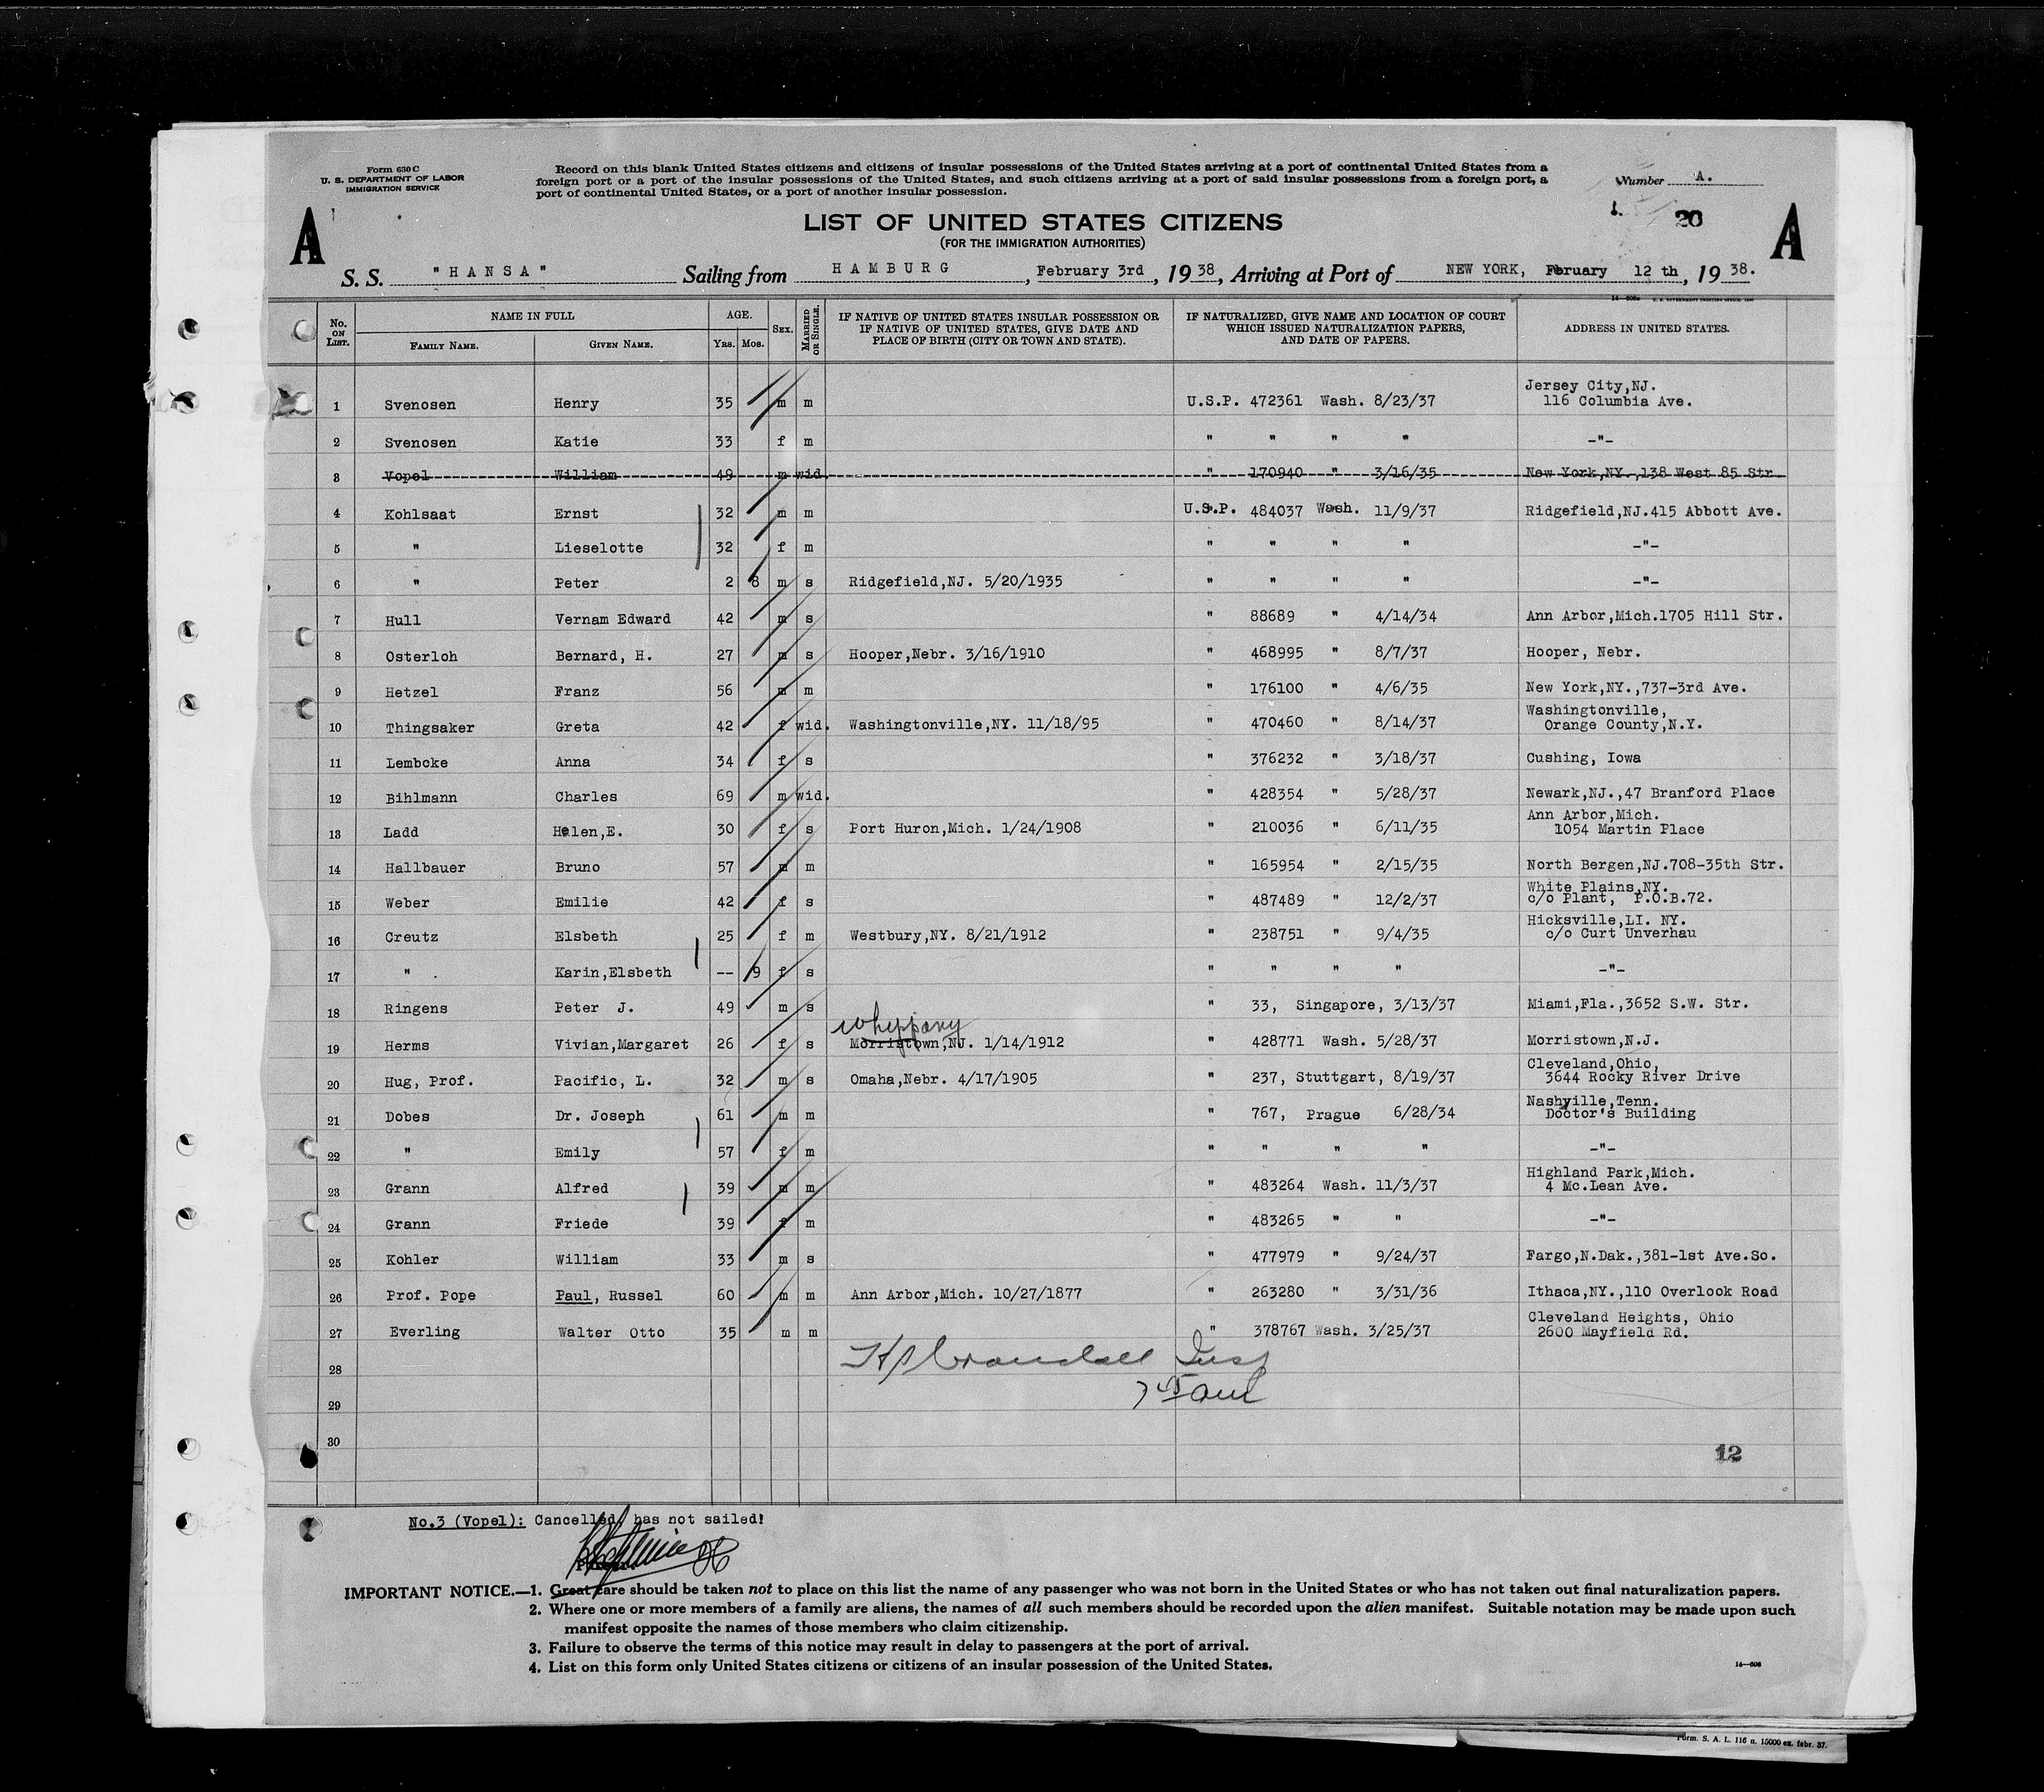 Form 630 C
U. S. DEPARTMENT OF LABOR
IMMIGRATION SERVICE
Record on this blank United States citizens and citizens of insular possessions of the United States arriving at a port of continental United States from a
foreign port or a port of the insular possessions of the United States, and such citizens arriving at a port of said insular possessions from a foreign port, a
port of continental United States, or a port of another insular possession.
Number A.
20
A LIST OF UNITED STATES CITIZENS A
(FOR THE IMMIGRATION AUTHORITIES)
S. S. "HANSA" Sailing from HAMBURG, February 3rd, 1938, Arriving at Port of NEW YORK, Fbruary 12 th, 1938.
No. ON LIST. NAME IN FULL FAMILY NAME. GIVEN NAME. AGE. YRS. MOS. SEX. MARRIED OR SINGLE. IF NATIVE OF UNITED STATES INSULAR POSSESSION OR IF NATIVE OF UNITED STATES, GIVE DATE AND PLACE OF BIRTH (CITY OR TOWN AND STATE). IF NATURALIZED, GIVE NAME AND LOCATION OF COURT WHICH ISSUED NATURALIZATION PAPERS, AND DATE OF PAPERS. ADDRESS IN UNITED STATES.
1 Svenosen Henry 35 m m U.S.P. 472361 Wash. 8/23/37 Jersey City,NJ. 116 Columbia Ave.
2 Svenosen Katie 33 f m " " " " -"-
3 Vopel William 49 m wid. " 170940 " 3/16/35 New York,NY.,138 West 85 Str.
4 Kohlsaat Ernst 32 m m U.S.P. 484037 Wash. 11/9/37 Ridgefield,NJ.415 Abbott Ave.
5 " Lieselotte 32 f m " " " " -"-
6 " Peter 2 8 m s Ridgefield,NJ. 5/20/1935 " " " " -"-
7 Hull Vernam Edward 42 m s " 88689 " 4/14/34 Ann Arbor,Mich.1705 Hill Str.
8 Osterloh Bernard, H. 27 m s Hooper,Nebr. 3/16/1910 " 468995 " 8/7/37 Hooper, Nebr.
9 Hetzel Franz 56 m m " 176100 " 4/6/35 New York,NY.,737-3rd Ave.
10 Thingsaker Greta 42 f wid. Washingtonville,NY. 11/18/95 " 470460 " 8/14/37 Washingtonville, Orange County,N.Y.
11 Lembcke Anna 34 f s " 376232 " 3/18/37 Cushing, Iowa
12 Bihlmann Charles 69 m wid. " 428354 " 5/28/37 Newark,NJ.,47 Branford Place
13 Ladd Helen,E. 30 f s Port Huron,Mich. 1/24/1908 " 210036 " 6/11/35 Ann Arbor,Mich. 1054 Martin Place
14 Hallbauer Bruno 57 m m " 165954 " 2/15/35 North Bergen,NJ.708-35th Str.
15 Weber Emilie 42 f s " 487489 " 12/2/37 White Plains,NY. c/o Plant, P.O.B.72.
16 Creutz Elsbeth 25 f m Westbury,NY. 8/21/1912 " 238751 " 9/4/35 Hicksville,LI. NY. c/o Curt Unverhau
17 " Karin,Elsbeth -- 9 f s " " " " -"-
18 Ringens Peter J. 49 m s " 33, Singapore, 3/13/37 Miami,Fla.,3652 S.W. Str.
Whippany
19 Herms Vivian,Margaret 26 f s Morristown,NJ. 1/14/1912 " 428771 Wash. 5/28/37 Morristown,N.J.
20 Hug, Prof. Pacific, L. 32 m s Omaha,Nebr. 4/17/1905 " 237, Stuttgart, 8/19/37 Cleveland,Ohio, 3644 Rocky River Drive
21 Dobes Dr. Joseph 61 m m " 767, Prague 6/28/34 Nashville,Tenn. Doctor's Building
22 " Emily 57 f m " " " " -"-
23 Grann Alfred 39 m m " 483264 Wash. 11/3/37 Highland Park,Mich. 4 Mc.Lean Ave.
24 Grann Friede 39 f m " 483265 " " -"-
25 Kohler William 33 m s " 477979 " 9/24/37 Fargo,N.Dak.,381-1st Ave.So.
26 Prof. Pope Paul, Russel 60 m m Ann Arbor,Mich. 10/27/1877 " 263280 " 3/31/36 Ithaca,NY.,110 Overlook Road
27 Everling Walter Otto 35 m m " 378767 Wash. 3/25/37 Cleveland Heights, Ohio 2600 Mayfield Rd.
28 Crandall Insp
29
30
12
No.3 (Vopel): Cancelled, has not sailed!
IMPORTANT NOTICE.—1. Great care should be taken not to place on this list the name of any passenger who was not born in the United States or who has not taken out final naturalization papers.
2. Where one or more members of a family are aliens, the names of all such members should be recorded upon the alien manifest. Suitable notation may be made upon such
manifest opposite the names of those members who claim citizenship.
3. Failure to observe the terms of this notice may result in delay to passengers at the port of arrival.
4. List on this form only United States citizens or citizens of an insular possession of the United States.
14—608
Form. S. A. L. 116 a. 15000 ex. febr. 37.